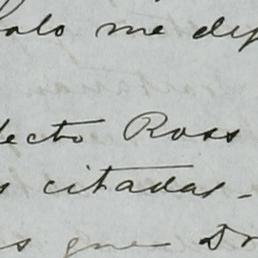 solo me dej
lecto Ross
s citadas -
s que Dn